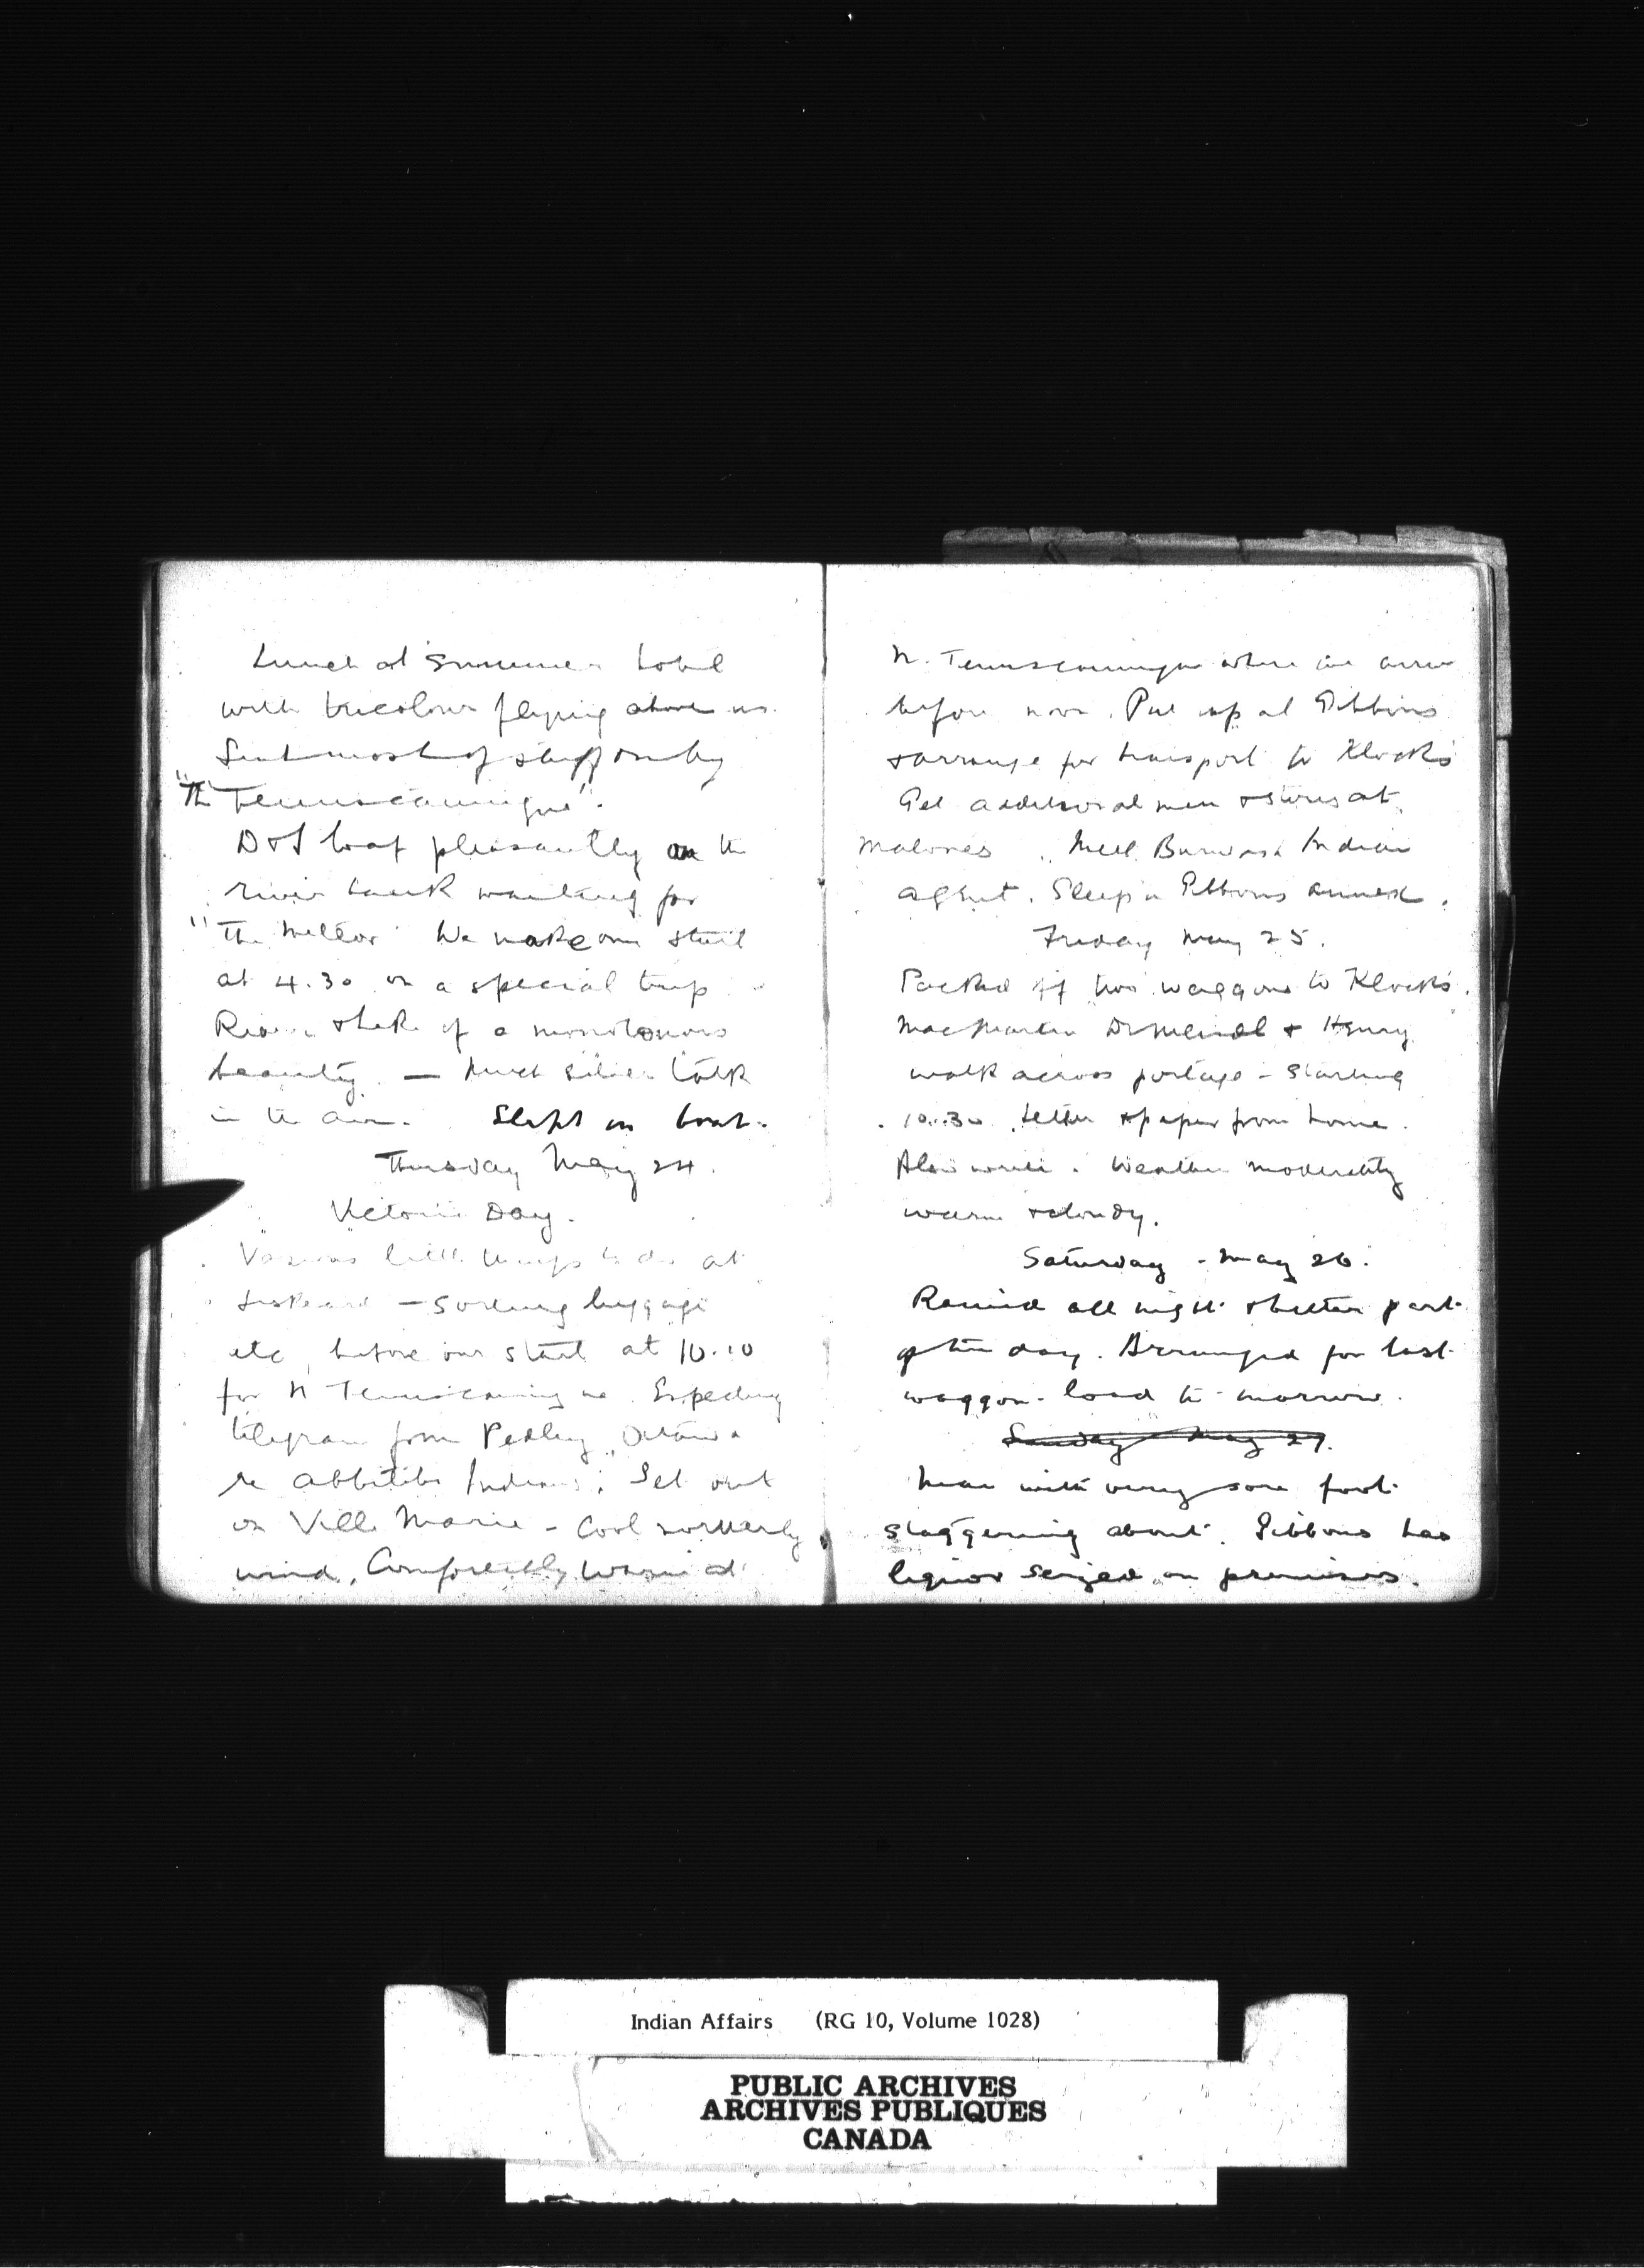 Lunch at Summer hotel
with tricolour flying above us.
Sent most of stuff on by
"The Temiscamingue".
D & I loaf pleasantly on the
river bank waiting for
"The Meteor" We make our start
at 4.30 on a special trip
River & lake of a monotonous
beauty. — Much silver talk
in the air. Slept on boat.
Thursday May 24.
Victoria Day.
Various little things to do at
Liskeard — sorting luggage
etc, before our start at 10.10
for N Temiscamingue. Expecting
telegram from Pedley, Ottawa
re Abbitibi Indians. Set out
on Ville Marie - Cool northerly
wind. Comfortably warm at
N. Temiscamingue where we arrive
before noon. Put up at Gibbons
& arrange for transport to Klock's
Get additional men & stores at
Malones. Meet Burwash Indian
agent. Sleep in Gibbons annex.
Friday May 25.
Packed off two waggons to Klock's.
MacMartin Dr Meindl &
walk across portage - starting
10.30. Letter & paper from home.
Also write. Weather moderately
warm & cloudy.
Saturday - May 26.
Rained all night & better part
of the day. Arranged for last
waggon-load to-morrow.
Sunday May 27.
Man with very sore foot
staggering about. Gibbons has
liquor seized on premises.
Indian Affairs (RG 10, Volume 1028)
PUBLIC ARCHIVES
ARCHIVES PUBLIQUES
CANADA